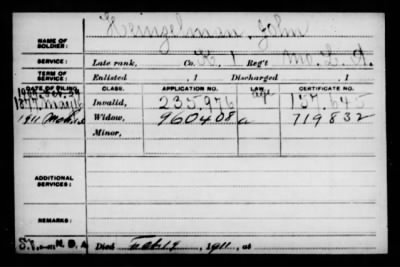 NAME OF SOLDIER: Heinzelman, John
SERVICE: Late rank, Co. K, 1 Reg't Mo. L. A.
TERM OF SERVICE: Enlisted , 1 Discharged , 1
DATE OF FILING. CLASS. APPLICATION NO. LAW. CERTIFICATE NO.
1877 May Invalid, 235.976 Age 157.645
1911 Widow, 960408 a 719832
Minor,
ADDITIONAL SERVICES:
REMARKS:
Died Feb. 19, 1911, at